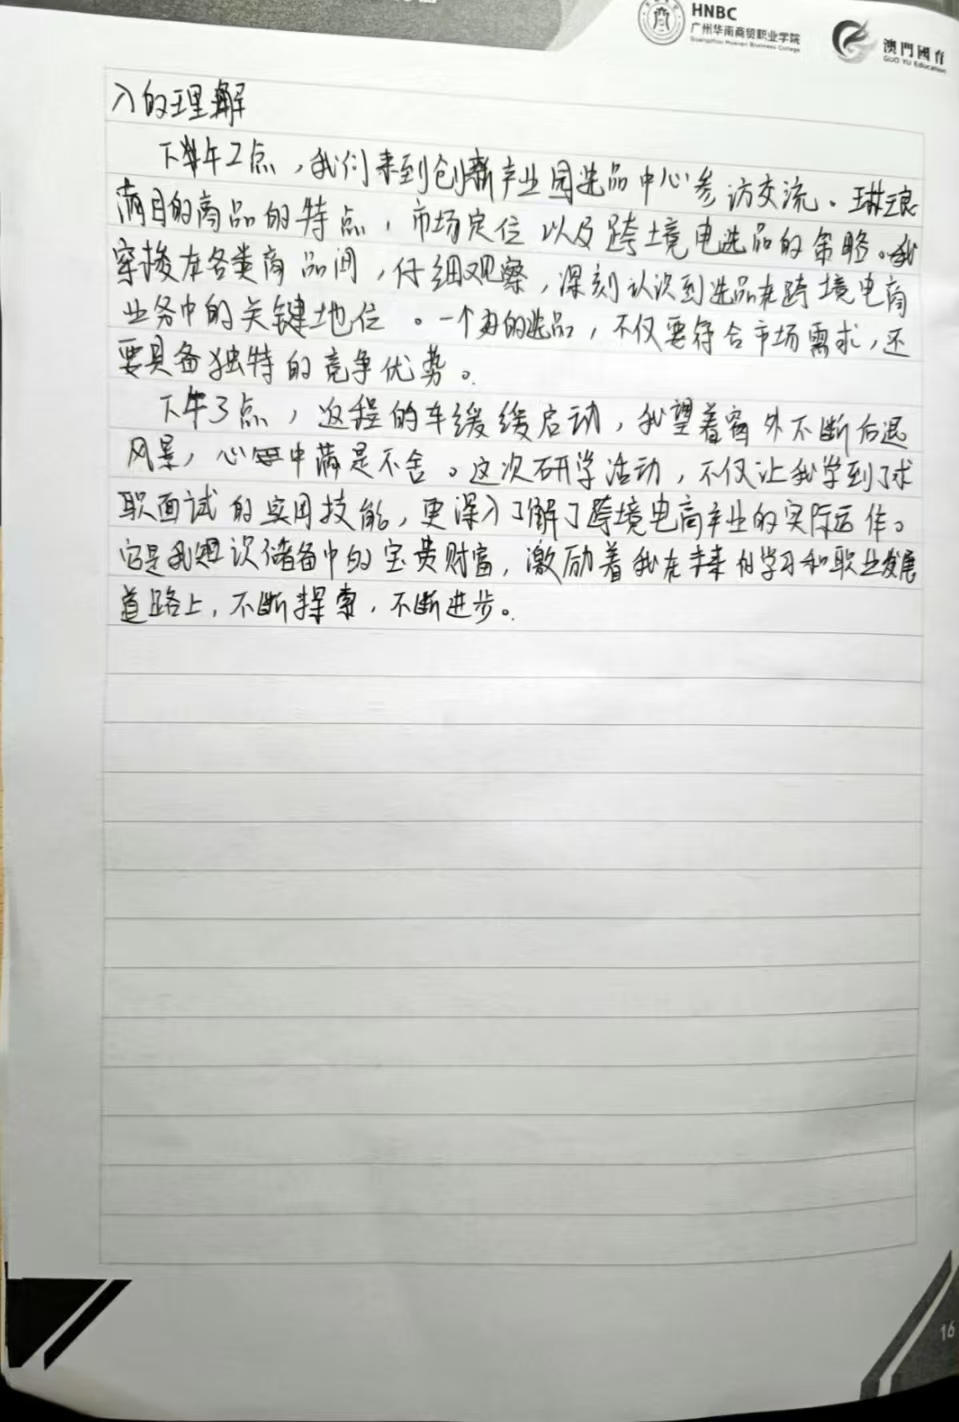 HNBC
广州华南商贸职业学院
Guangzhou Huanan Business College
澳門國育
GUO YU Education
入的理解
下午2点，我们来到创新产业园选品中心参访交流。琳琅
满目的商品的特点，市场定位以及跨境电选品的策略。我
穿梭在各类商品间，仔细观察，深刻认识到选品在跨境电商
业务中的关键地位。一个的选品，不仅要符合市场需求，还
要具备独特的竞争优势。
下午3点，返程的车缓缓启动，我望着窗外不断后退
风景，心中满是不舍。这次研学活动，不仅让我学到了求
职面试的实用技能，更深入了解了跨境电商产业的实际运作。
它是我知识储备中的宝贵财富，激励着我在未来的学习和职业发展
道路上，不断探索，不断进步。
16